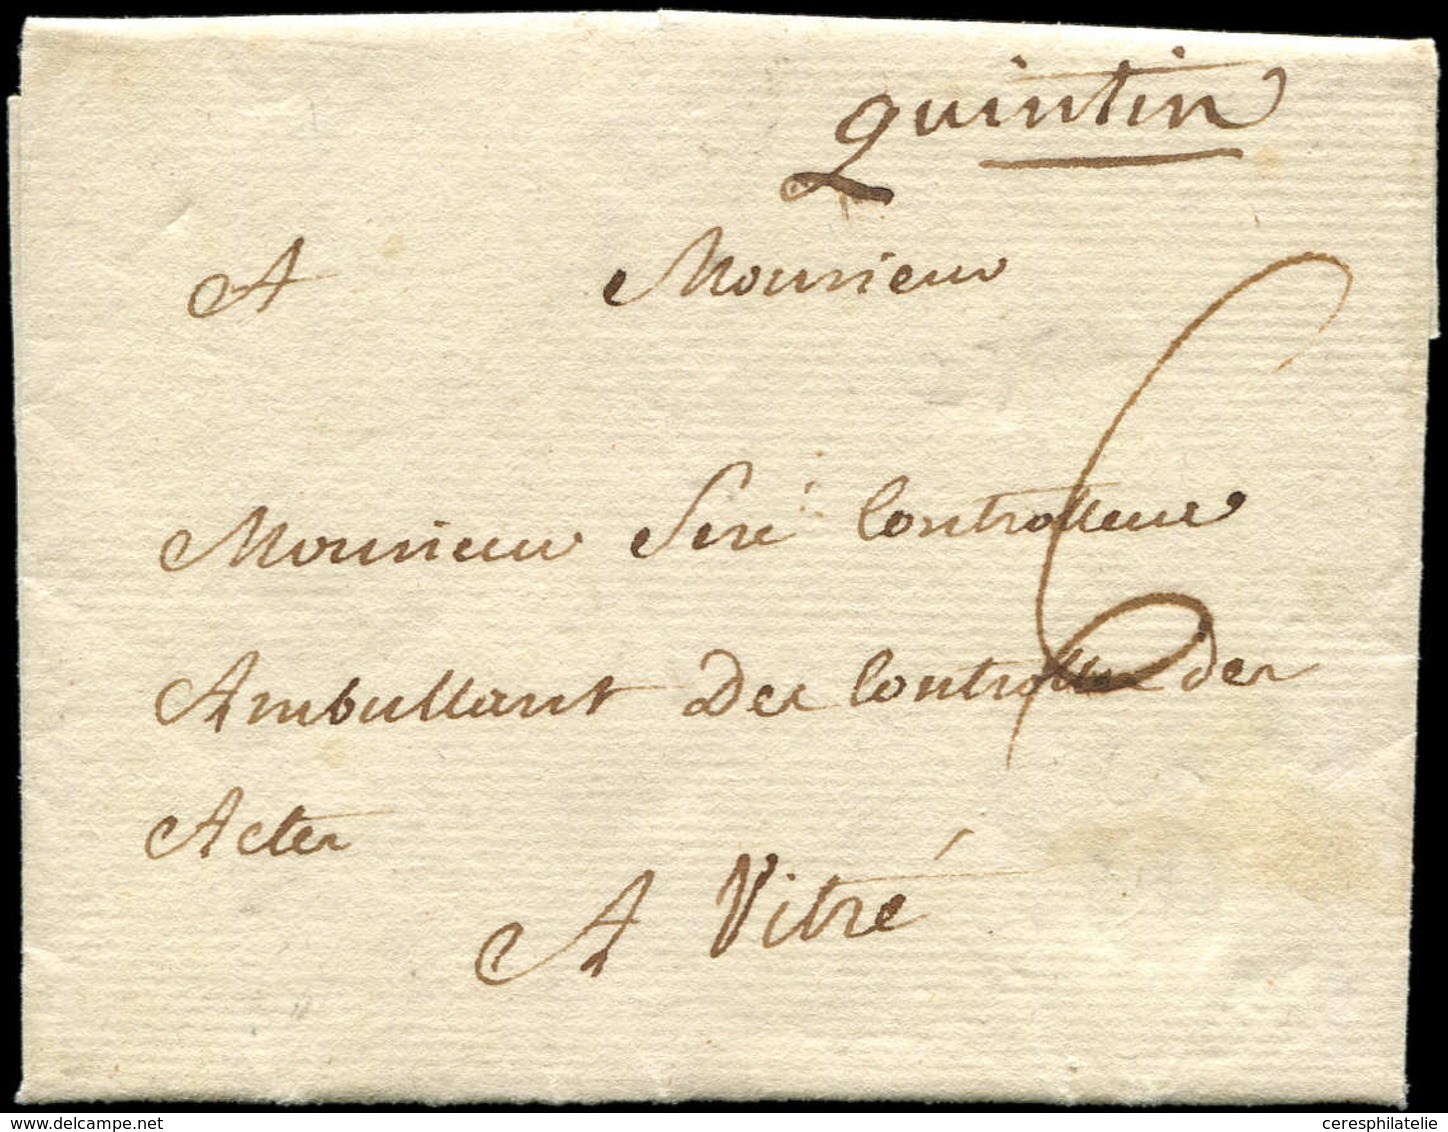 Quintin
A Monsieur
6
Monsieur Seré Controlleur
Ambullant Des Controlles des
Actes
A Vitré
delcampe.net
ceresphilatelie